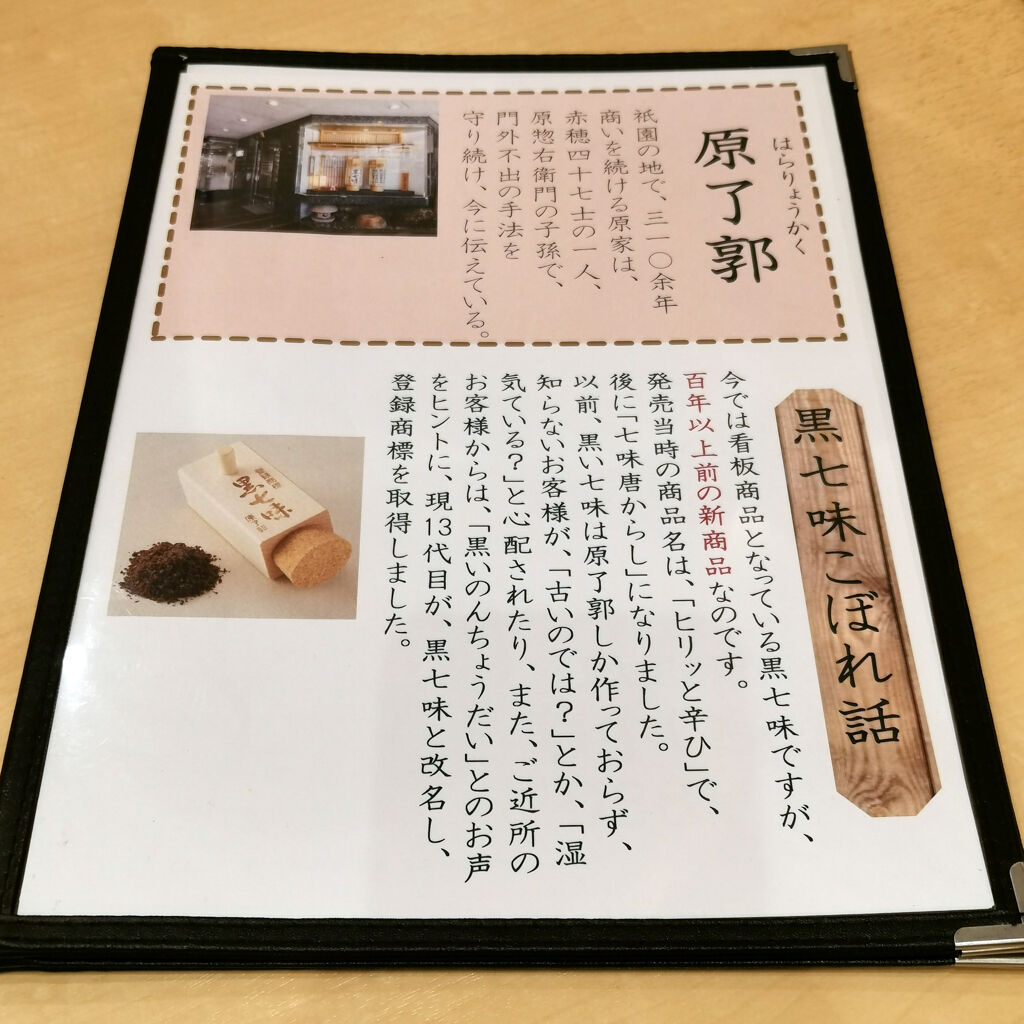 はらりょうかく
原了郭
祇園の地で、三一〇余年
商いを続ける原家は、
赤穂四十七士の一人、
原惣右衛門の子孫で、
門外不出の手法を
守り続け、今に伝えている。
黒七味こぼれ話
今では看板商品となっている黒七味ですが、
百年以上前の新商品なのです。
発売当時の商品名は、「ヒリッと辛ひ」で、
後に「七味唐からし」になりました。
以前、黒い七味は原了郭しか作っておらず、
知らないお客様が、「古いのでは?」とか、「湿
気ている?」と心配されたり、また、ご近所の
お客様からは、「黒いのんちょうだい」とのお声
をヒントに、現13代目が、黒七味と改名し、
登録商標を取得しました。
黒七味